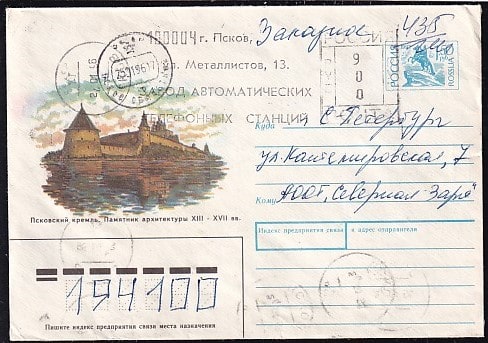 180004 г. Псков,
ул. Металлистов, 13.
ЗАВОД АВТОМАТИЧЕСКИХ
ТЕЛЕФОННЫХ СТАНЦИЙ
Заказное
435
РОССИЯ
900
РОССИЯ
ROSSIJA
Куда
г. С-Петербург
ул. Кантемировская, 7
Кому
АООТ „Северная Заря“
Псковский кремль. Памятник архитектуры XIII - XVII вв.
Индекс предприятия связи и адрес отправителя
194100
Пишите индекс предприятия связи места назначения